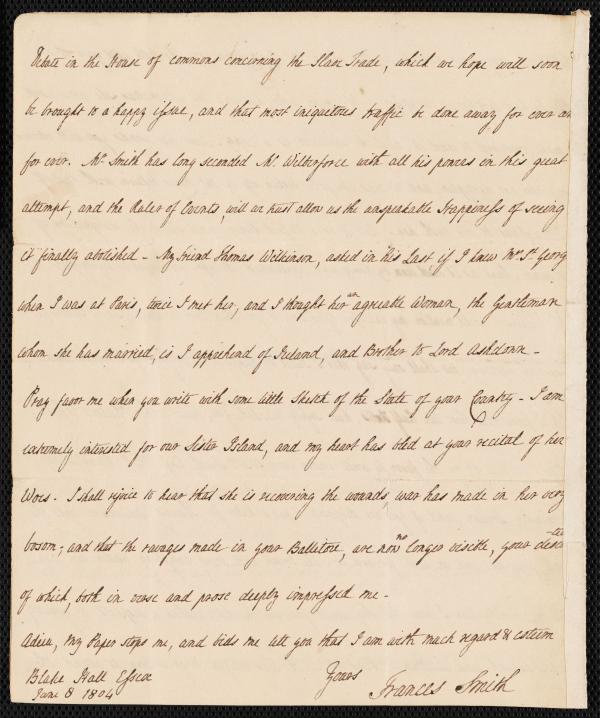 Debate in the House of commons concerning the Slave Trade, which we hope will soon
be brought to a happy issue, and that most iniquitous traffic be done away for ever and
for ever. Mr. Smith has long seconded Mr. Wilberforce with all his powers in this great
attempt, and the Ruler of Events, will we trust allow us the unspeakable Happiness of seeing
it finally abolished - My friend Thomas Wilkinson, asked in his Last if I knew Mrs. St. George
when I was at Paris, twice I met her, and I thought her an agreable Woman, the Gentleman
whom she has married, is I apprehend of Ireland, and Brother to Lord Ashdown -
Pray favor me when you write with some little Sketch of the State of your Country - I am
extremely interested for our Sister Island, and my heart has bled at your recital of her
Woes - I shall rejoice to hear that she is recovering the wounds, war has made in her very
bosom; and that the ravages made in your Ballitore, are now no longer visible, your
of which, both in verse and prose deeply impressed me -
Adieu, My Paper stops me, and bids me tell you that I am with much regard & esteem
Blake Hall Essex Yours
June 8 1804 Frances Smith